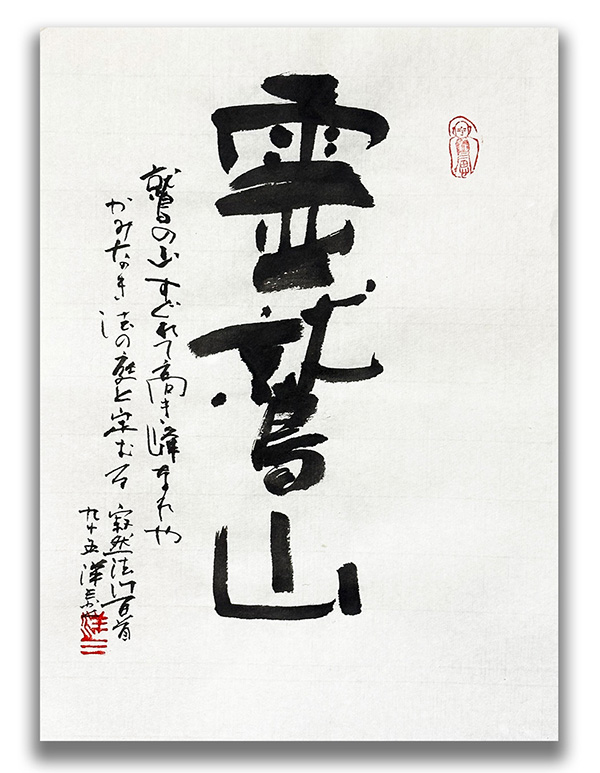 靈鷲山
鷲の山すぐれて高き峰なれや
かみなき法の庭と定むる
寂然法門百首
九十五 洋三
洋三